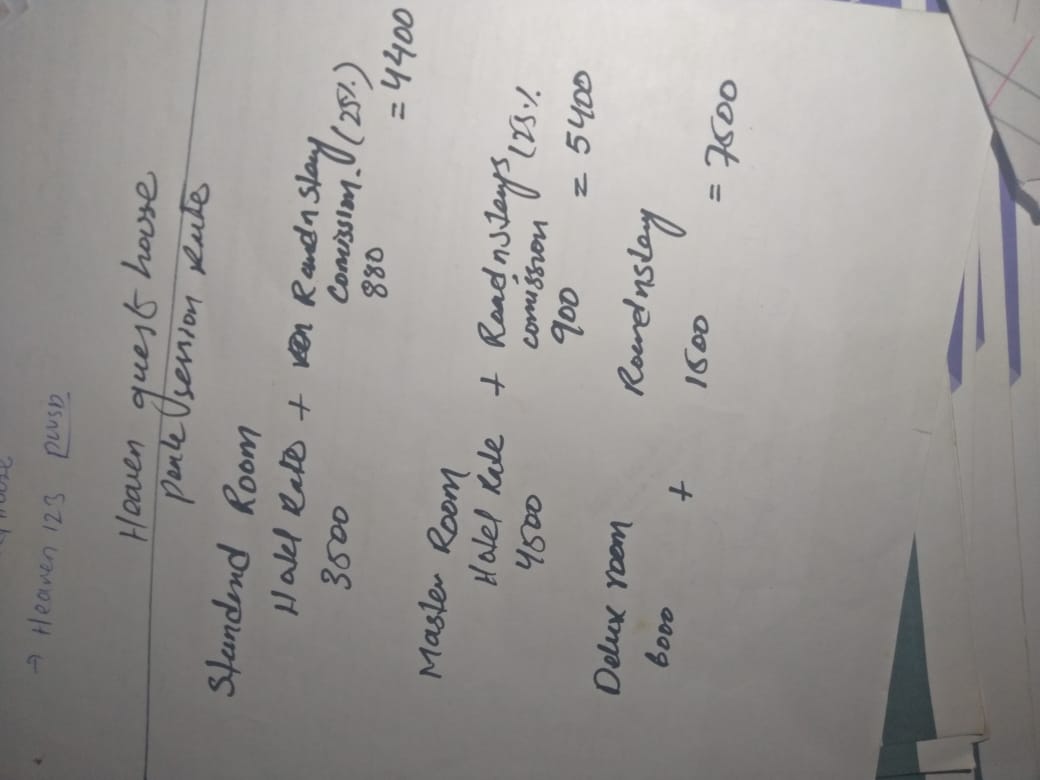 → Heaven 123 pwsD
Heaven guest house
peak session Rate
Standend Room
Hotel Rate + Roadnstay
comission. (25%)
3500 880 = 4400
Master Room
Hotel Rate + Roadnstays
comission (25%
4500 900 = 5400
Delux room Roadnstay
6000 + 1500 = 7500